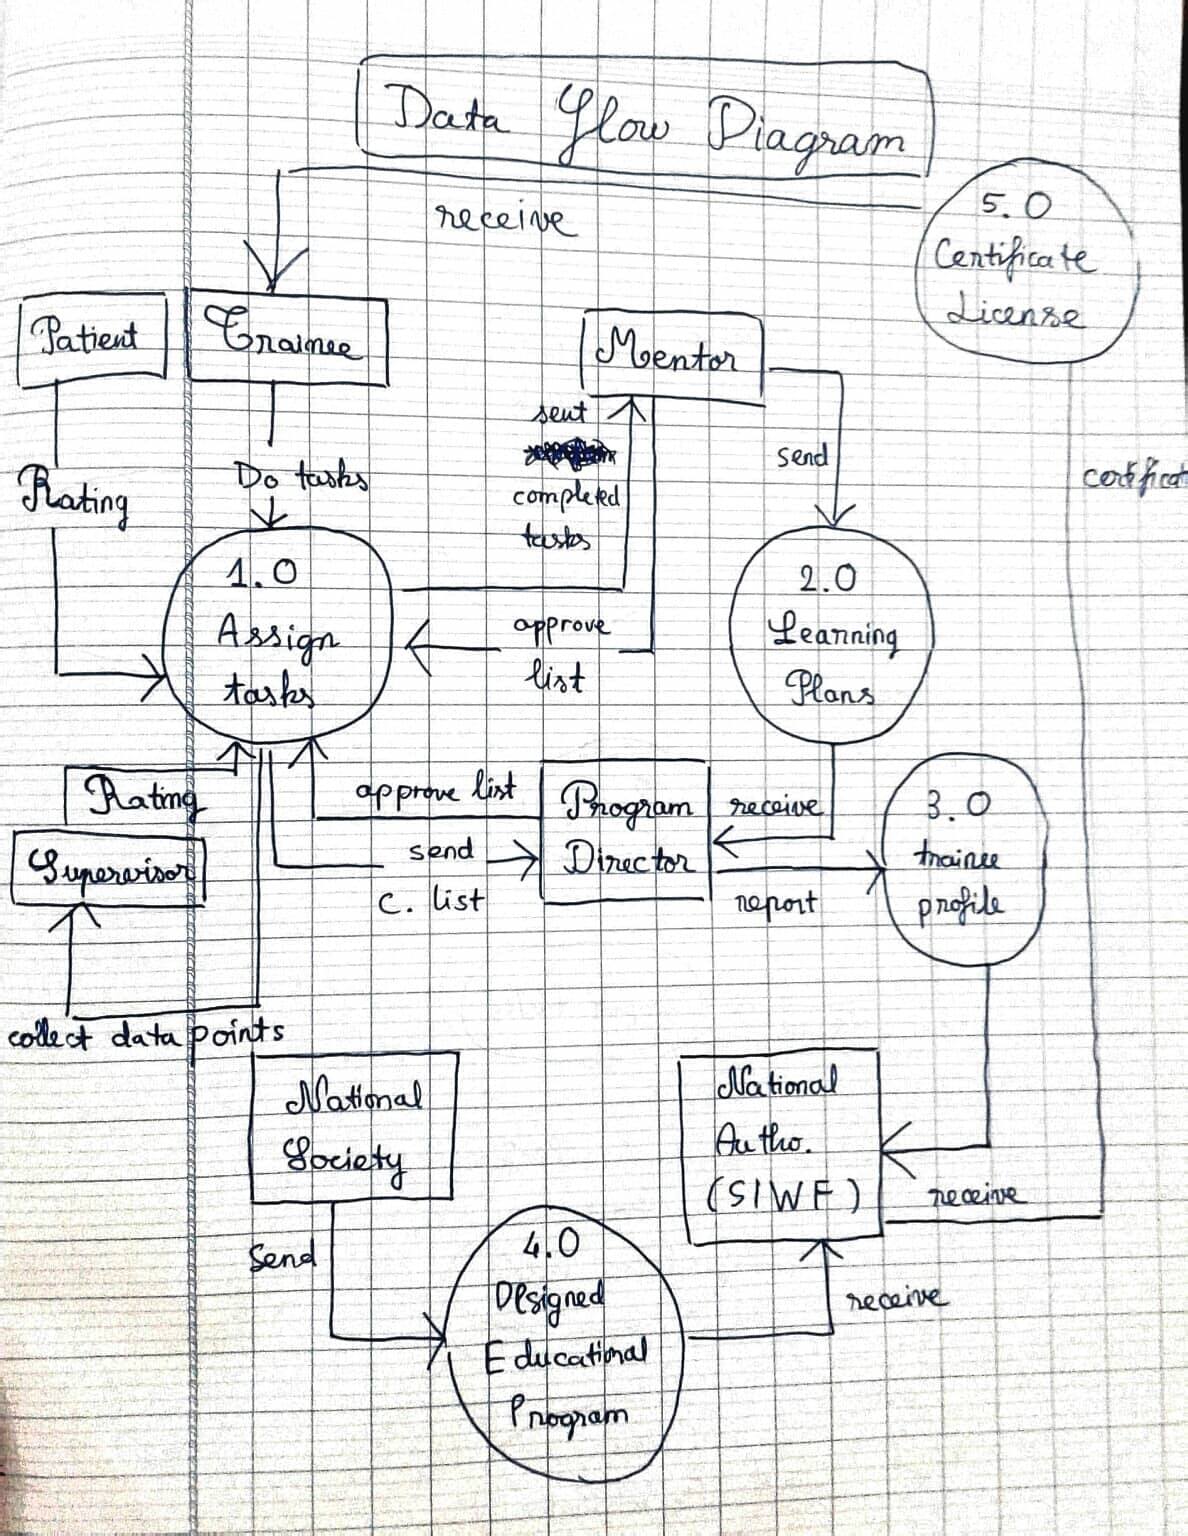 Data Flow Diagram
receive
5.0
Certificate
License
Patient
Trainee
Mentor
Rating
Do tasks
sent
completed
tasks
send
certificat
1.0
Assign
tasks
approve
list
2.0
Learning
Plans
Rating
Supervisor
approve list
send
c. list
Program
Director
receive
report
3.0
trainee
profile
collect data points
National
Society
National
Autho.
(SIWF)
receive
Send
4.0
Designed
Educational
Program
receive